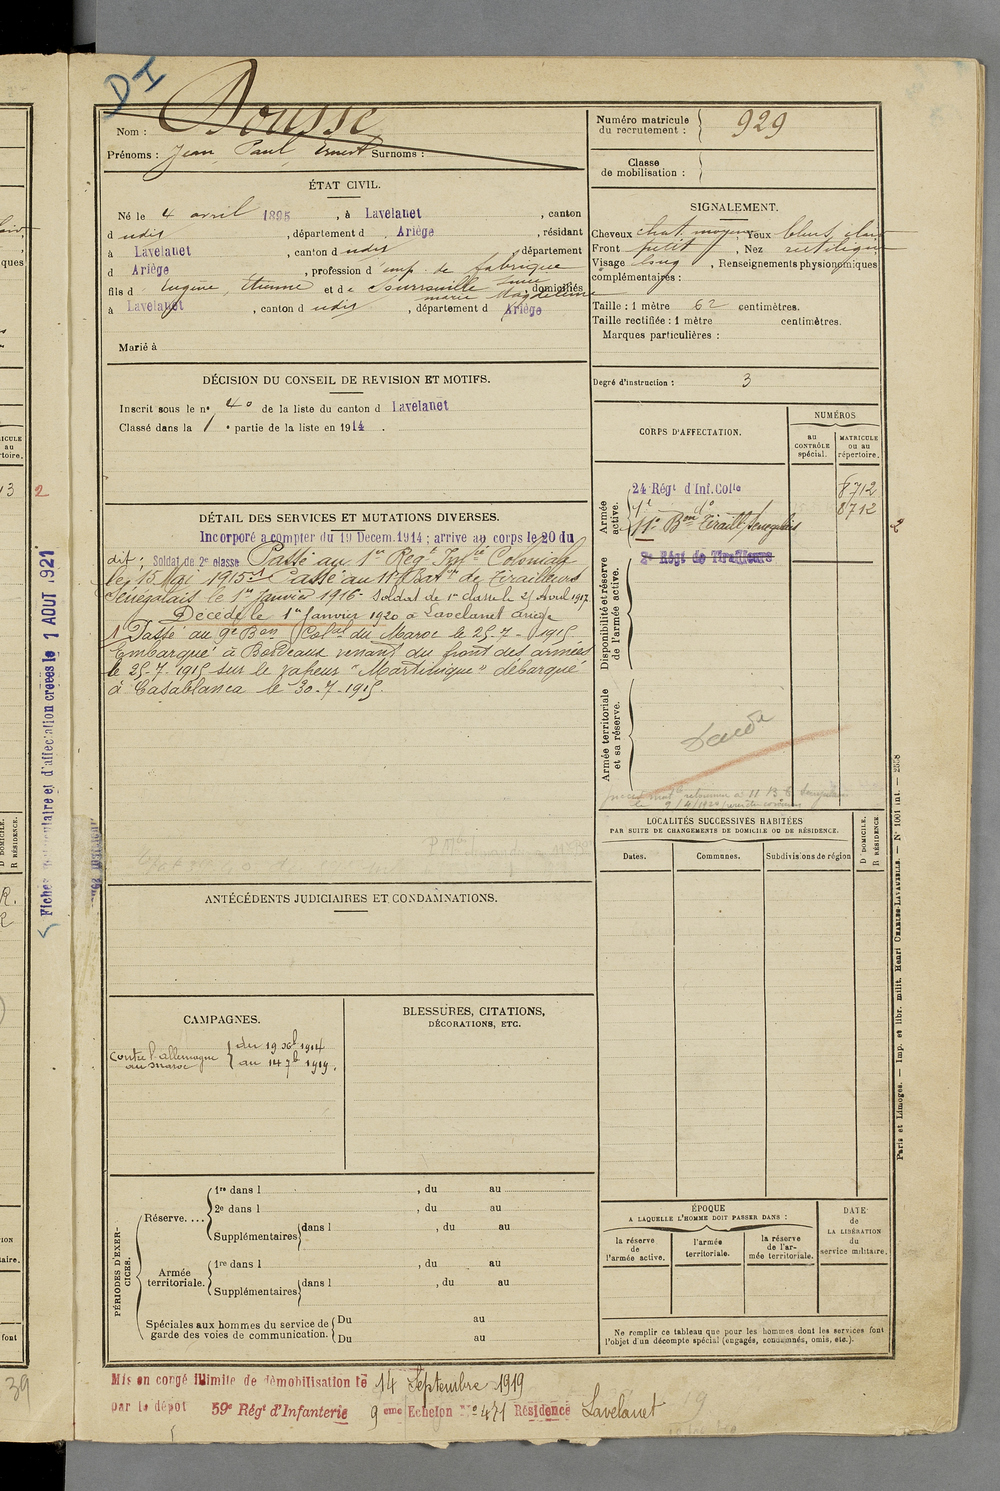 DI
Nom : Dousse
Prénoms : Jean Paul Ernest Surnoms :
Numéro matricule du recrutement : 929
Classe de mobilisation :
ÉTAT CIVIL.
Né le 4 avril 1895, à Lavelanet, canton
d udis, département d Ariège, résidant
à Lavelanet, canton d udis, département
d Ariège, profession d'emp. de fabrique
fils d Eugène, Etienne et de née
marie Magdeleine domiciliés
à Lavelanet, canton d udis, département d Ariège
Marié à
SIGNALEMENT.
Cheveux chat. moyen, Yeux bleus clair
Front petit, Nez rectiligne
Visage long, Renseignements physionomiques
complémentaires :
Taille : 1 mètre 62 centimètres.
Taille rectifiée : 1 mètre centimètres.
Marques particulières :
Degré d'instruction : 3
DÉCISION DU CONSEIL DE REVISION ET MOTIFS.
Inscrit sous le n° 40 de la liste du canton d Lavelanet
Classé dans la 1° partie de la liste en 1914.
CORPS D'AFFECTATION.
NUMÉROS
au CONTRÔLE spécial.
MATRICULE ou au répertoire.
Armée active.
24 Régt d'Inf. Colle 8712
1r do 8712
11e Bon Tiraill. Senegalais
Disponibilité et réserve de l'armée active.
2e Régt de Tirailleurs
Armée territoriale et sa réserve.
DÉTAIL DES SERVICES ET MUTATIONS DIVERSES.
Incorporé à compter du 19 Decem. 1914 ; arrivé au corps le 20 du
dit ; Soldat de 2e classe Passé au 1er Regt Infie Coloniale
le 15 Mai 1915 Passé au 11e Baton de Tirailleurs
Senegalais le 1er Janvier 1916 Soldat de 1e classe le 21 Avril 1917
Décédé le 1er Janvier 1920 à Lavelanet Ariège
1 Passé au 9e Bon Colal du Maroc le 25-7-1915
Embarqué à Bordeaux venant du front des armées
le 25-7-1915 sur le vapeur "Martinique" débarqué
à Casablanca le 30-7-1915.
LOCALITÉS SUCCESSIVES HABITÉES
PAR SUITE DE CHANGEMENTS DE DOMICILE OU DE RÉSIDENCE.
Dates.
Communes.
Subdivisions de région
D DOMICILE.
R RÉSIDENCE.
ANTÉCÉDENTS JUDICIAIRES ET CONDAMNATIONS.
CAMPAGNES.
Contre l'allemagne du 19 Xbre 1914
au maroc au 14 7bre 1919.
BLESSURES, CITATIONS,
DÉCORATIONS, ETC.
PÉRIODES D'EXERCICES.
Réserve....
1re dans l , du au
2e dans l , du au
Supplémentaires dans l , du au
Armée territoriale.
1re dans l , du au
Supplémentaires dans l , du au
Spéciales aux hommes du service de garde des voies de communication.
Du au
Du au
ÉPOQUE
A LAQUELLE L'HOMME DOIT PASSER DANS :
la réserve de l'armée active.
l'armée territoriale.
la réserve de l'armée territoriale.
DATE de LA LIBÉRATION du service militaire.
Ne remplir ce tableau que pour les hommes dont les services font
l'objet d'un décompte spécial (engagés, condamnés, omis, etc.).
Mis en congé illimité de démobilisation le 14 Septembre 1919
par le dépôt 59e Régt d'Infanterie 9eme Echelon No 471 Résidence Lavelanet
Paris et Limoges. — Imp. et libr. milit. Henri CHARLES-LAVAUZELLE. — N° 1001 int. — 2558
1 AOUT 1921
39